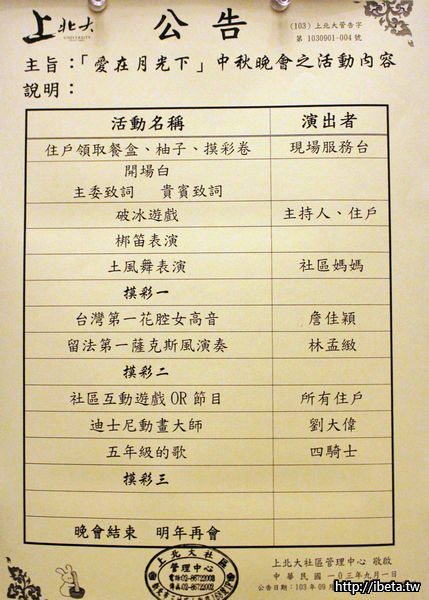 上北大
UNIVERSITY
公告
(103) 上北大管告字
第 1030901-004 號
主旨：「愛在月光下」中秋晚會之活動內容
說明：
活動名稱 演出者
住戶領取餐盒、柚子、摸彩卷 現場服務台
開場白
主委致詞 貴賓致詞
破冰遊戲 主持人、住戶
梆笛表演
土風舞表演 社區媽媽
摸彩一
台灣第一花腔女高音 詹佳穎
留法第一薩克斯風演奏 林孟緻
摸彩二
社區互動遊戲 OR 節目 所有住戶
迪士尼動畫大師 劉大偉
五年級的歌 四騎士
摸彩三
晚會結束 明年再會
上北大社區
管理中心
電話:02-86722008
傳真:02-86722002
上北大社區管理中心 敬啟
中華民國一〇三年九月一日
公告日期：103 年 09 月
http://ibeta.tw